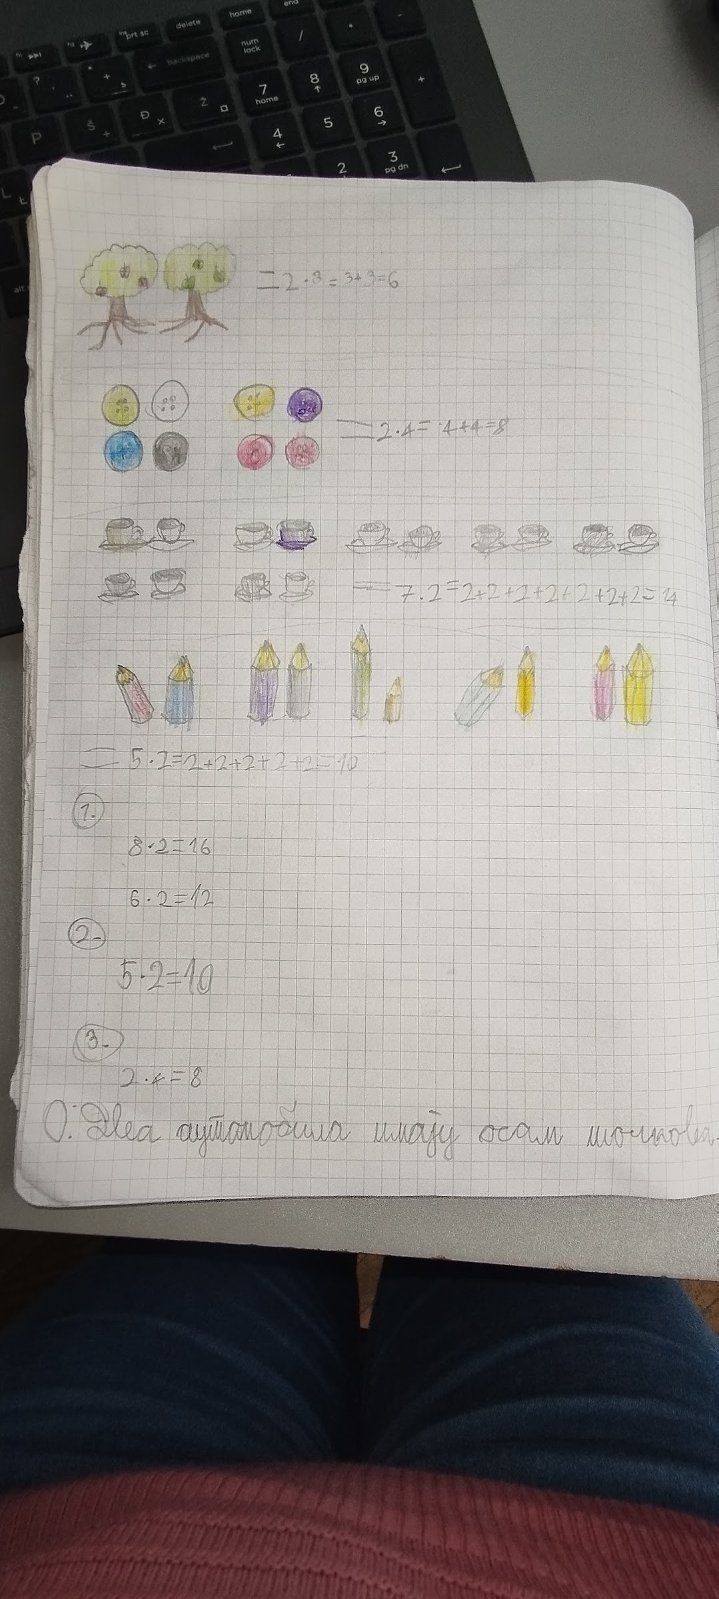 home
delete
prt sc
backspace
num lock
/
*
-
7 home
8
9 pg up
+
4
5
6
2
3 pg dn
P
Š
Đ
Ž
= 2 · 3 = 3+3=6
= 2 · 4 = 4+4=8
= 7 · 2 = 2+2+2+2+2+2+2=14
= 5 · 2=2+2+2+2+2=10
1.
8 · 2=16
6 · 2=12
2.
5 · 2=10
3.
2 · 4=8
О: Два аутомобила имају осам точкова.